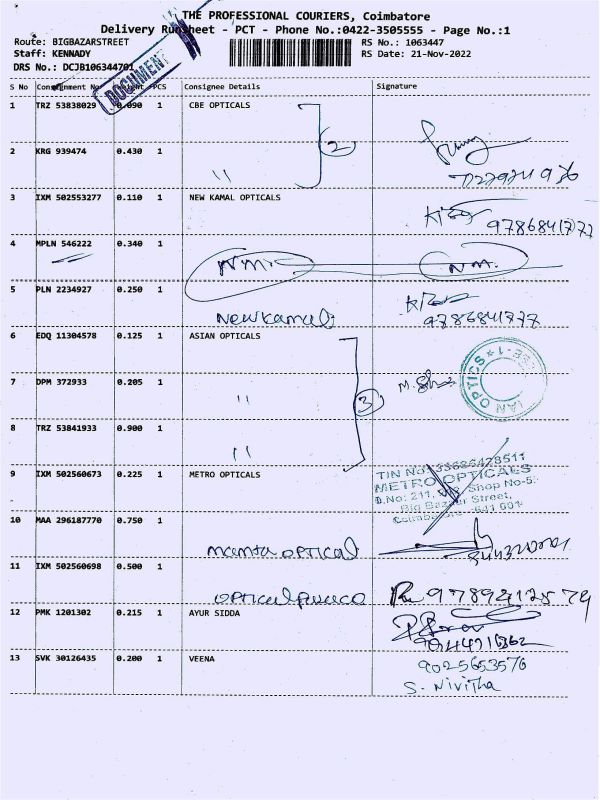 THE PROFESSIONAL COURIERS, Coimbatore
Delivery Runsheet - PCT - Phone No.:0422-3505555 - Page No.:1
Route: BIGBAZARSTREET
RS No.: 1063447
Staff: KENNADY
RS Date: 21-Nov-2022
DRS No.: DCJB106344701
DOCUMENT
S No Consignment No Weight PCS Consignee Details Signature
1 TRZ 53838029 0.090 1 CBE OPTICALS
2
2 KRG 939474 0.430 1 "
3 IXM 502553277 0.110 1 NEW KAMAL OPTICALS
9786841777
4 MPLN 546222 0.340 1
N.M.
5 PLN 2234927 0.250 1 Newkamal
9786841777
6 EDQ 11304578 0.125 1 ASIAN OPTICALS
7 DPM 372933 0.205 1 "
3
8 TRZ 53841933 0.900 1 "
9 IXM 502560673 0.225 1 METRO OPTICALS
TIN No: 33686478511
METRO OPTICALS
D.No: 211, Shop No-5,
Big Bazaar Street,
Coimbatore - 641 001
10 MAA 296187770 0.750 1 mamta optical
11 IXM 502560698 0.500 1
12 PMK 1201302 0.215 1 AYUR SIDDA
13 SVK 30126435 0.200 1 VEENA
9025653576
S. Nivitha